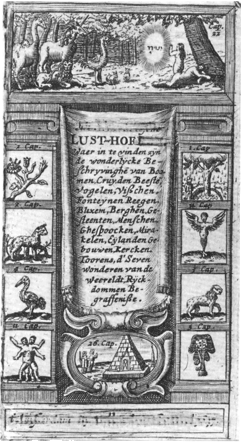 Cap.
22
יהוה
LUST-HOFF
Waer in te vinden zijn
de wonderlycke Be=
schryvinghe van Boo=
men, Cruyden, Beesten,
Vogelen, Visschen,
Fonteynen Reegen,
Blixem, Berghen, Ge=
steenten, Menschen,
Ghespoocken, Mira=
kelen, Eylanden Ge=
bouwen, Kercken,
Toorens, d'Seven
wonderen van de
Weereldt, Ryck=
dommen Be=
graffenisse.
1 Cap.
Cap.
Cap.
Cap.
26. Cap.